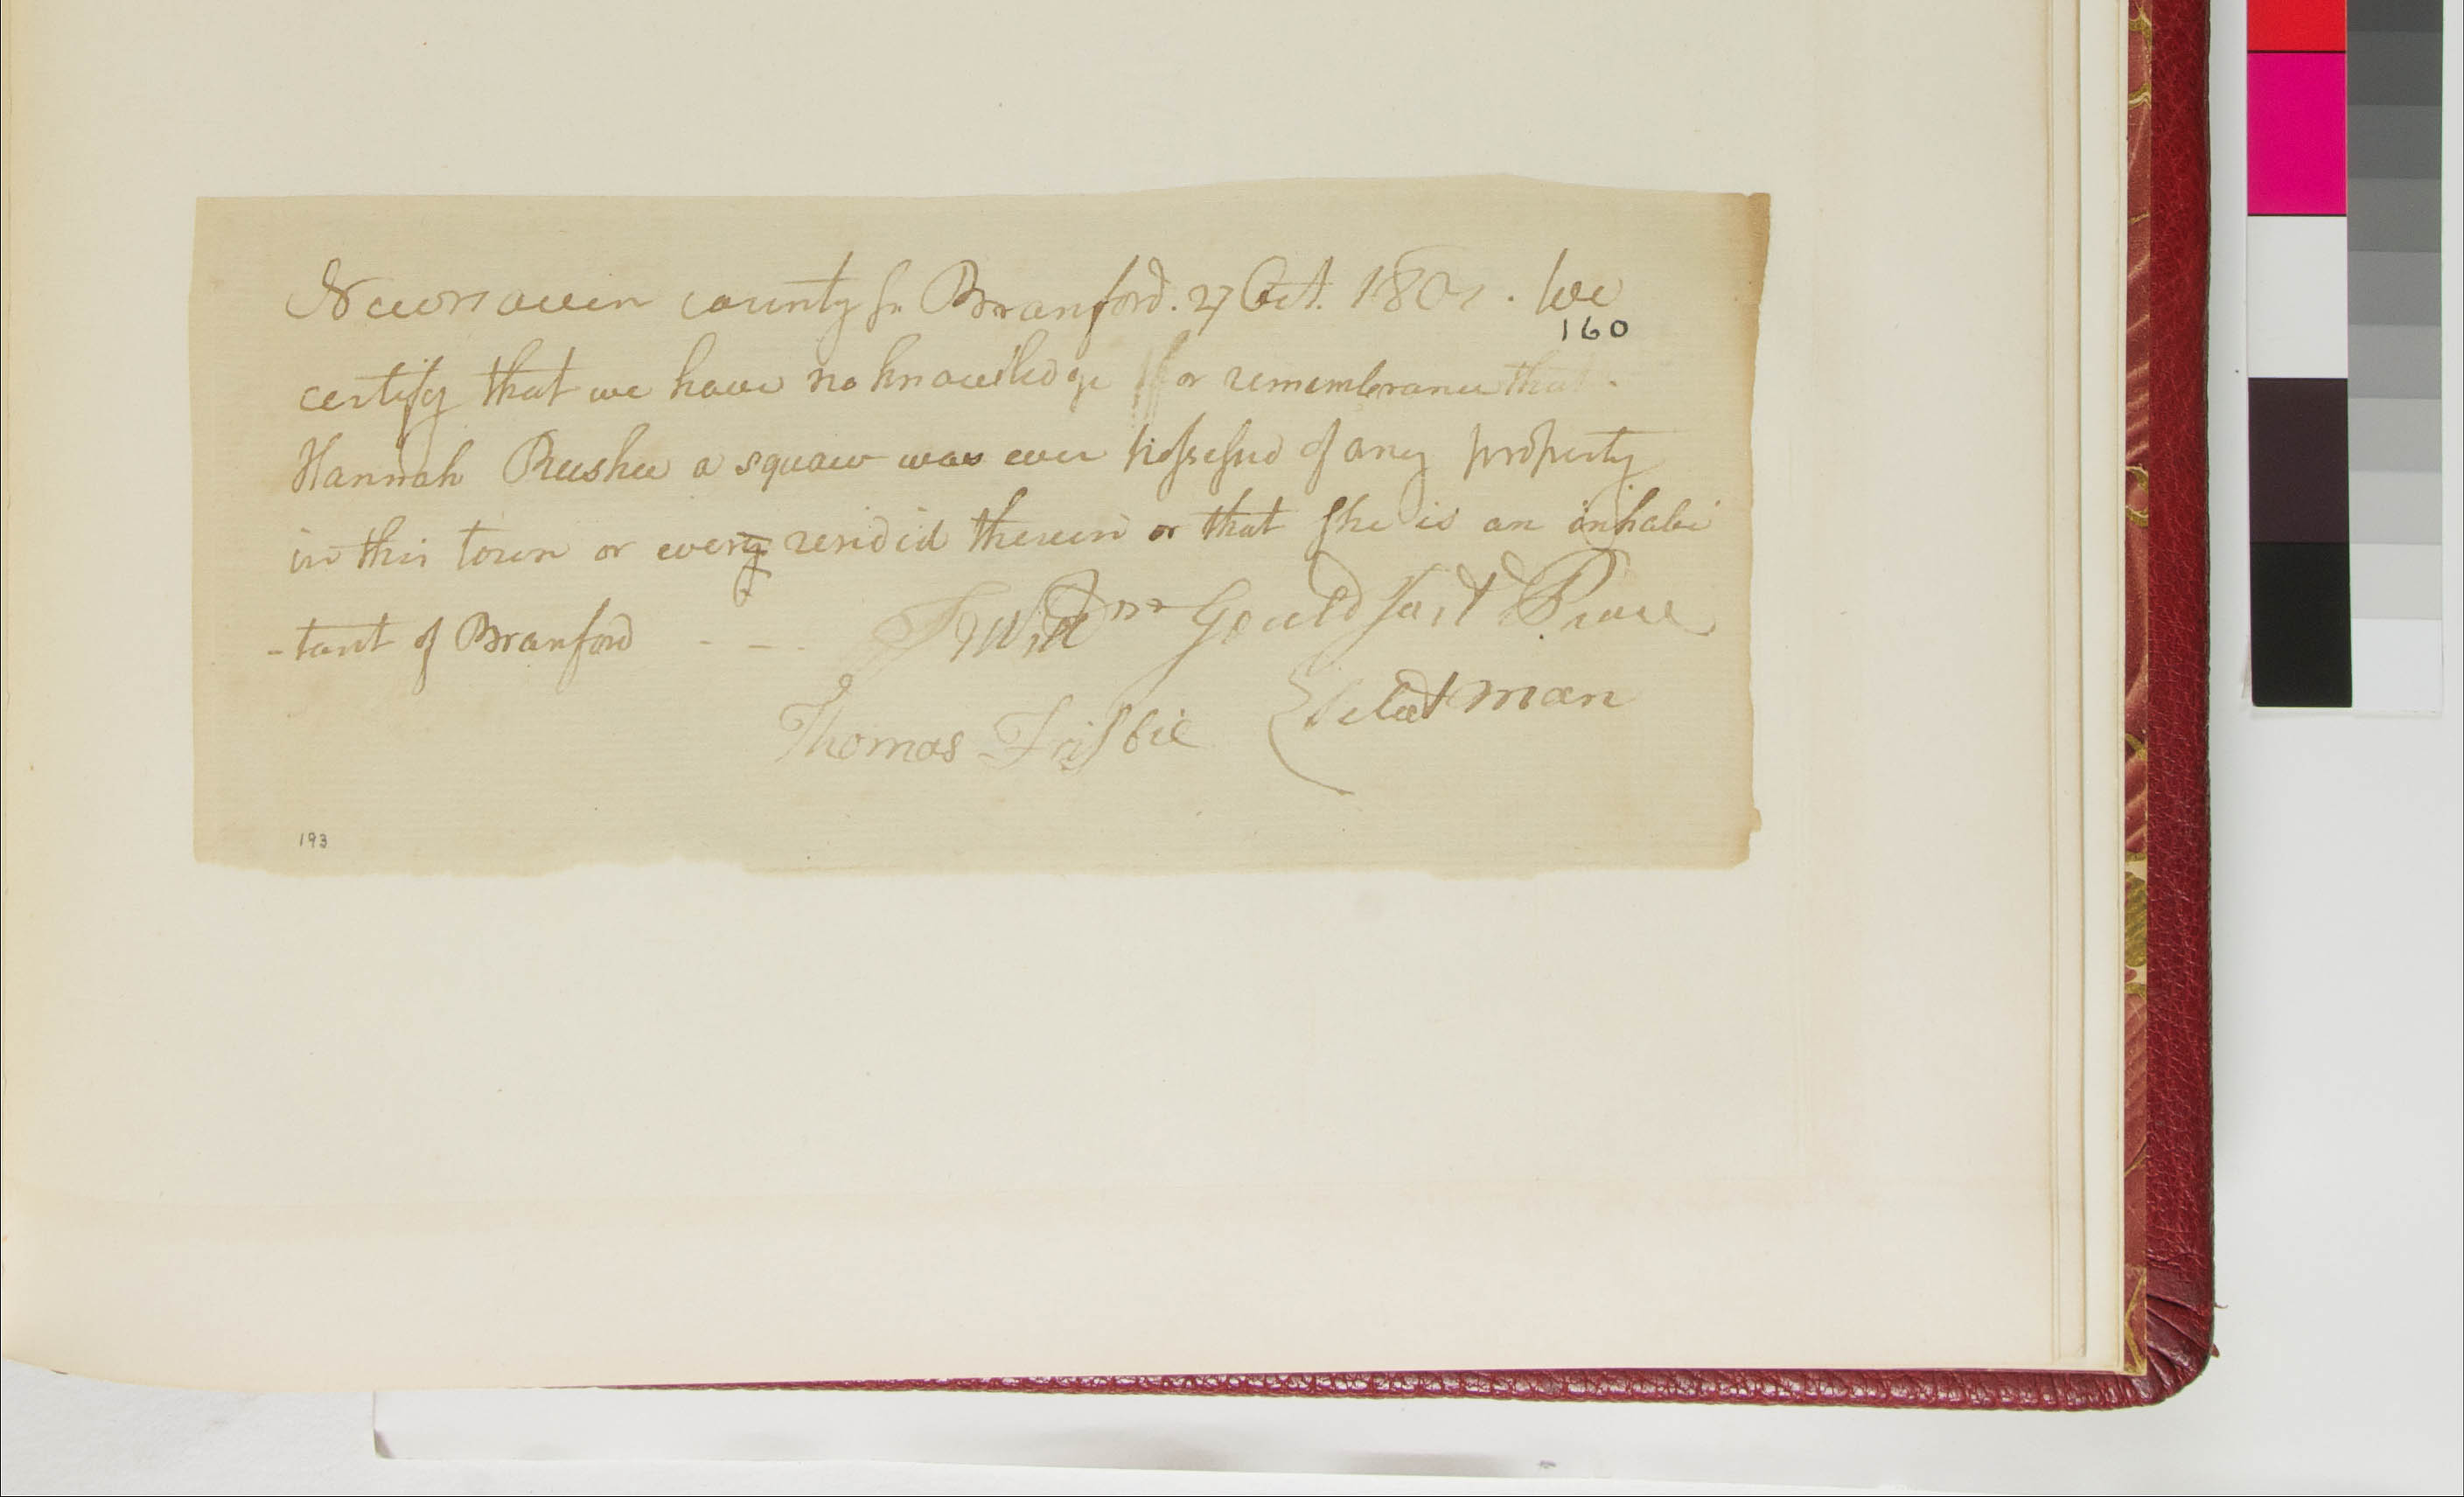 Newhaven county ss Branford. 27 Oct. 1801. We
160
certify that we have no knowledge or remembrance that
Hannah a squaw was ever possessed of any property
in this town or ever resided therein or that she is an inhabi
-tant of Branford - - -
Wm Gould Just Peace
Thomas Frisbie Select man
193